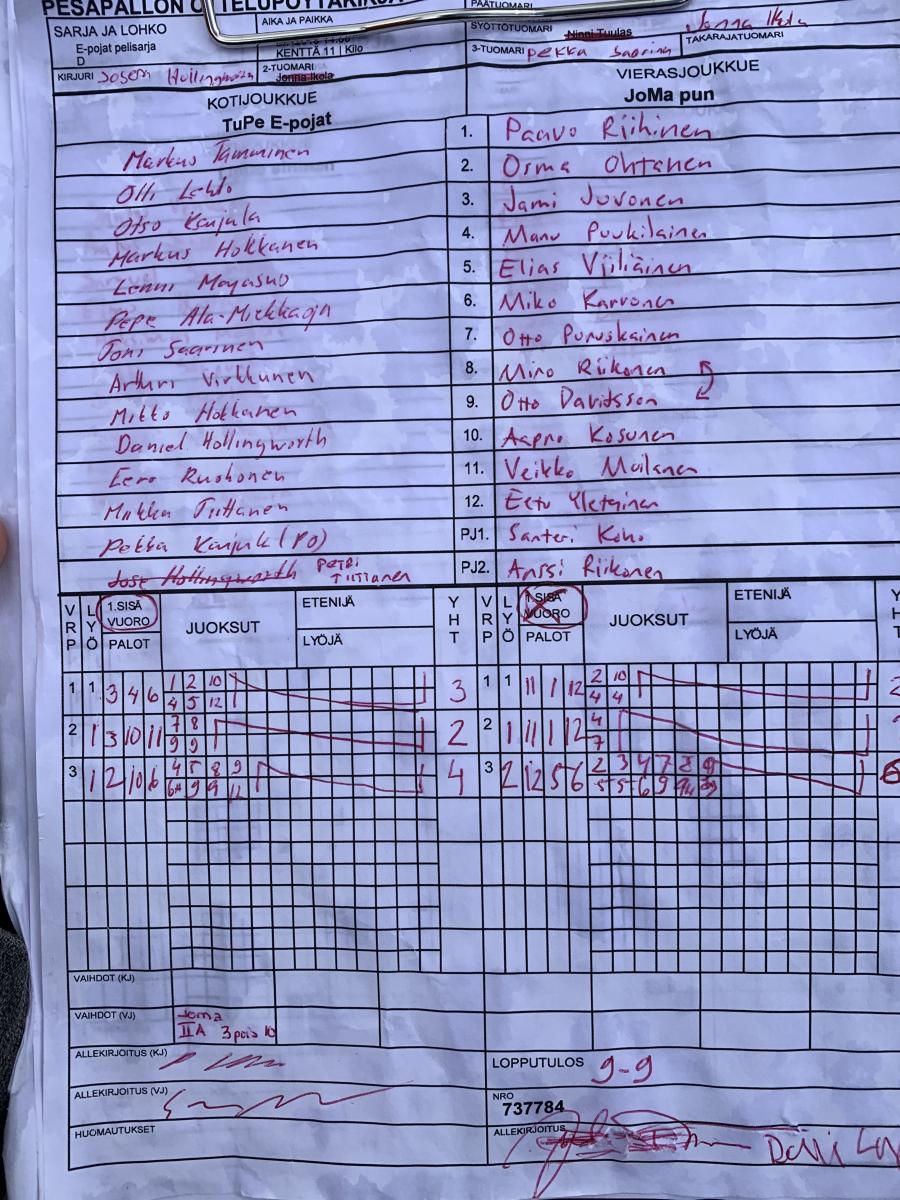 PESÄPALLON OTTELUPÖYTÄKIRJA
SARJA JA LOHKO
E-pojat pelisarja
D
AIKA JA PAIKKA
KENTTÄ 11 | Kilo
KIRJURI Joseph Hollingworth
2-TUOMARI
Jonna Ikola
PÄÄTUOMARI
SYÖTTÖTUOMARI Ninni Tuulas
Jonna Ikola
3-TUOMARI Pekka
TAKARAJATUOMARI
KOTIJOUKKUE
TuPe E-pojat
VIERASJOUKKUE
JoMa pun
Markus Tamminen 1. Paavo Riihinen
Olli Lehto 2. Osma Ohtanen
Otso Karjula 3. Jami Juvonen
Markus Hokkanen 4. Manu Puukilainen
Lenni 5. Elias
Pepe 6. Miko Karvonen
Joni Saarinen 7. Otto Puruskainen
Arthur Virkkunen 8. Miro Riikonen
Mikko Hokkanen 9. Otto Davidsson
Daniel Hollingworth 10. Aapro Kosunen
Eero Ruohonen 11. Veikko Moilanen
Miikka Tiittanen 12. Eetu
Pekka (PO) PJ1. Santeri Koho
Jose Hollingworth Petri Tiittanen PJ2. Anssi Riikonen
VRP LYÖ 1.SISÄ VUORO PALOT JUOKSUT ETENIJÄ LYÖJÄ YHT VRP LYÖ 1.SISÄ VUORO PALOT JUOKSUT ETENIJÄ LYÖJÄ YHT
1 1 3 4 6 1 2 10 3 1 1 11 1 12 2 10 2
4 5 12 4 4
2 1 3 10 11 7 8 2 2 1 11 1 12 4
9 9 7
3 1 2 10 6 4 5 8 9 4 3 2 12 5 6 2 3 4 7 8 6
9 9 12 5 5 6 9
VAIHDOT (KJ)
VAIHDOT (VJ) Joma
IIA 3 pois 10
ALLEKIRJOITUS (KJ)
LOPPUTULOS 9-9
ALLEKIRJOITUS (VJ)
NRO
737784
HUOMAUTUKSET
ALLEKIRJOITUS